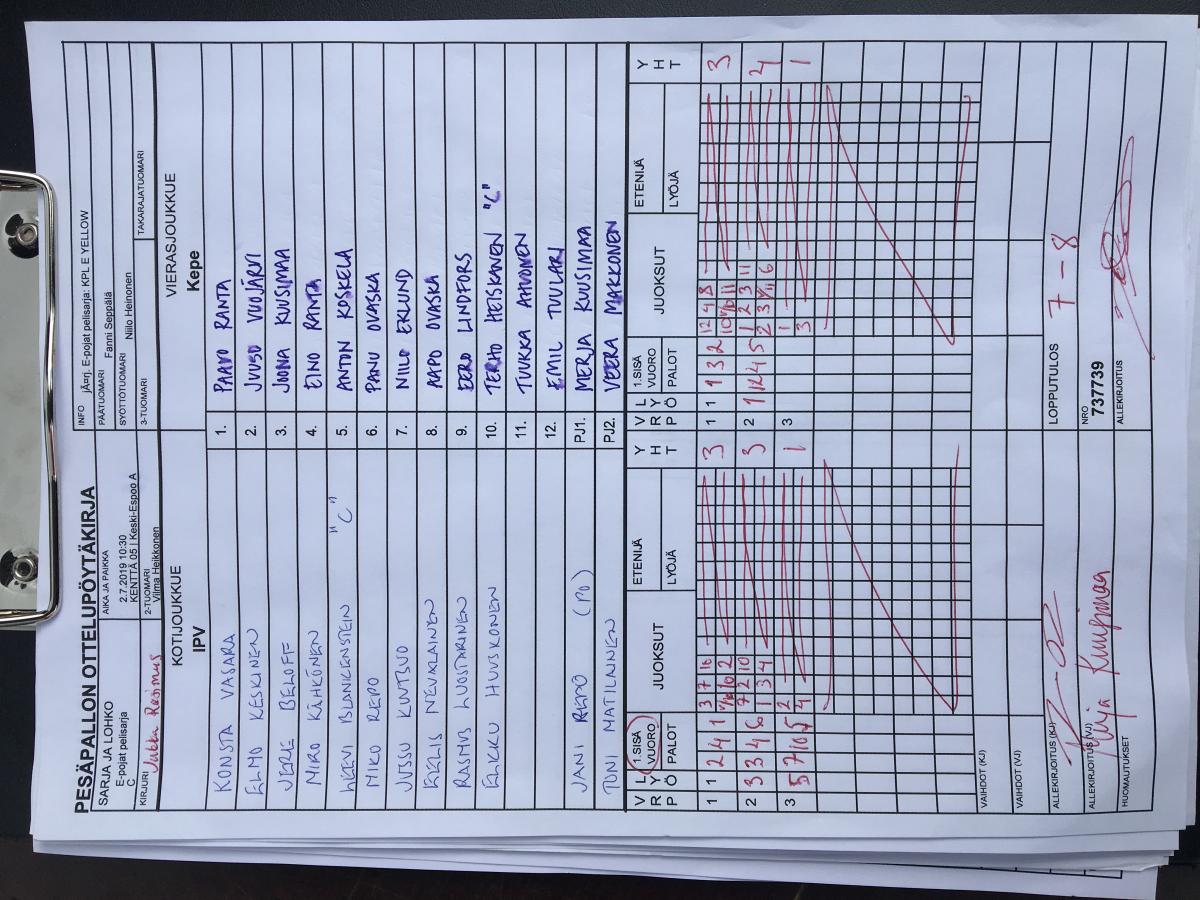 PESÄPALLON OTTELUPÖYTÄKIRJA
SARJA JA LOHKO
E-pojat pelisarja
C
AIKA JA PAIKKA
2.7.2019 10:30
KENTTÄ 05 | Keski-Espoo A
INFO jÃ¤rj. E-pojat pelisarja: KPL E YELLOW
PÄÄTUOMARI Fanni Seppälä
SYÖTTÖTUOMARI Niilo Heinonen
KIRJURI Jukka Rasimus
2-TUOMARI
Vilma Heikkonen
3-TUOMARI
TAKARAJATUOMARI
KOTIJOUKKUE
IPV
VIERASJOUKKUE
Kepe
KONSTA VASARA 1. PAAVO RANTA
ELMO KESKINEN 2. JUUSO VUOJÄRVI
JERE BELOFF 3. JOONA KUUSIMAA
MIRO KÄHKÖNEN 4. EINO RANTA
LEEVI BLANKENSTEIN "C" 5. ANTON KOSKELA
MIKO REPO 6. PANU OVASKA
JUSSU KUNTSUO 7. NIILO EKLUND
EELIS NEVALAINEN 8. AAPO OVASKA
RASMUS LUOSTARINEN 9. EERO LINDFORS
ELIKKU HUUSKONEN 10. TERHO HEISKANEN "C"
11. TUUKKA AHVONEN
12. EMIL TUULARI
JANI REPO (PO) PJ1. MERJA KUUSIMAA
TONI MATILAINEN PJ2. VEERA MAKKONEN
V R P L Y Ö 1.SISÄ VUORO PALOT JUOKSUT ETENIJÄ LYÖJÄ Y H T V R P L Y Ö 1.SISÄ VUORO PALOT JUOKSUT ETENIJÄ LYÖJÄ Y H T
1 1 2 4 1 3 7 10 3 1 1 1 3 2 12 4 8 3
10 2 10 11
2 3 3 4 6 7 2 10 3 2 1 12 4 5 1 2 3 11 4
1 3 4 2 3 6
3 5 7 10 5 2 1 3 1 1
4 3
VAIHDOT (KJ)
VAIHDOT (VJ)
ALLEKIRJOITUS (KJ)
LOPPUTULOS 7 - 8
ALLEKIRJOITUS (VJ) Merja Kuusimaa
NRO
737739
HUOMAUTUKSET
ALLEKIRJOITUS